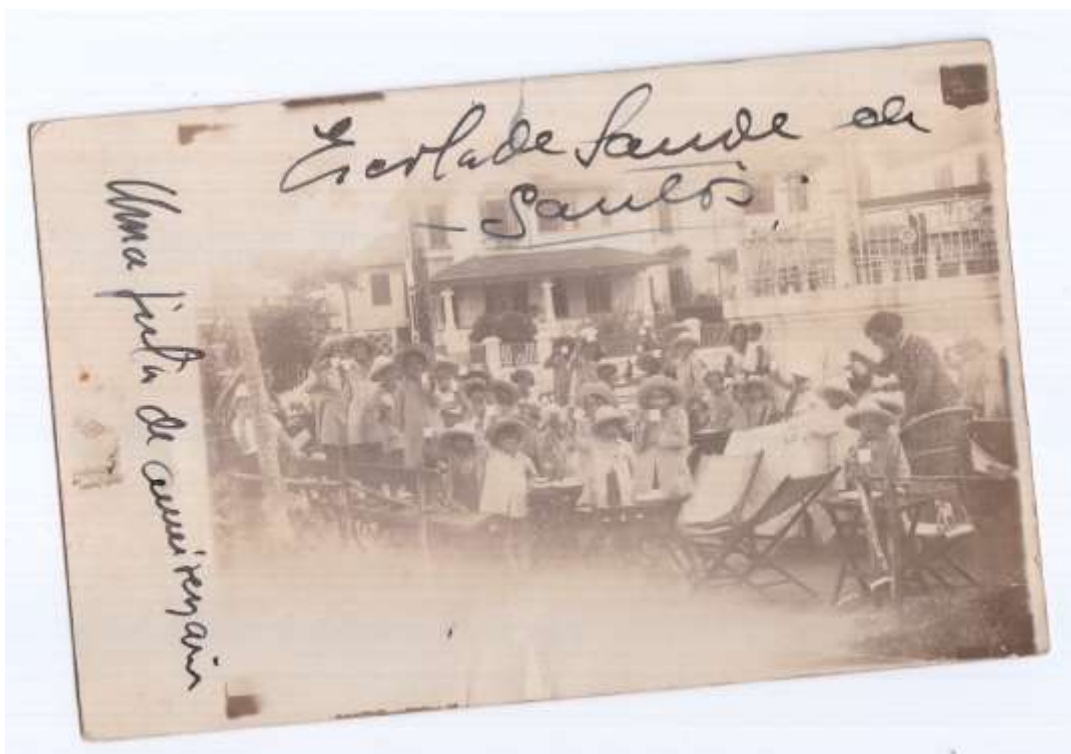 Escola de Saude de
Santos
Uma festa de aniversario